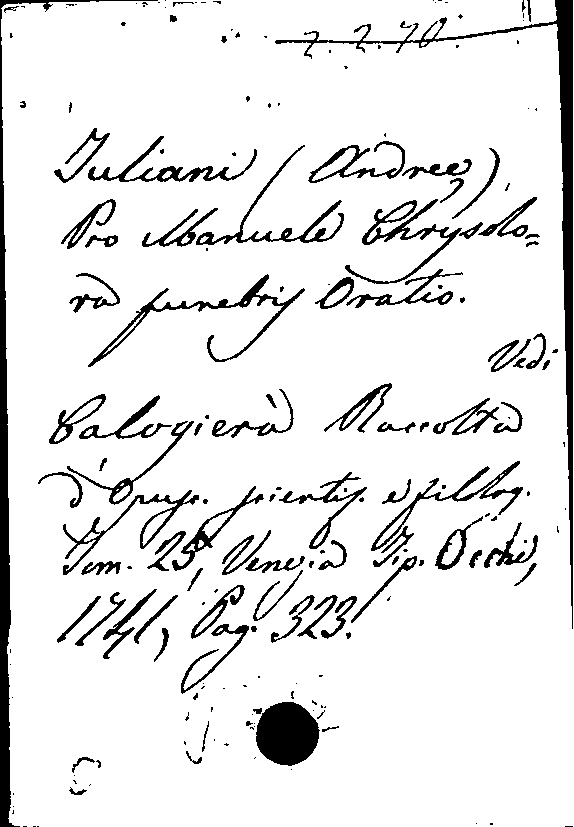 2.2.70.
Iuliani (Andree)
Pro Manuele Chrysolo=
ra funebris Oratio.
Vedi
Calogierà Raccolta
d'Opusc. scientif. e filolog.
Tom. 25, Venezia Tip. Occhi,
1741, Pag. 323.